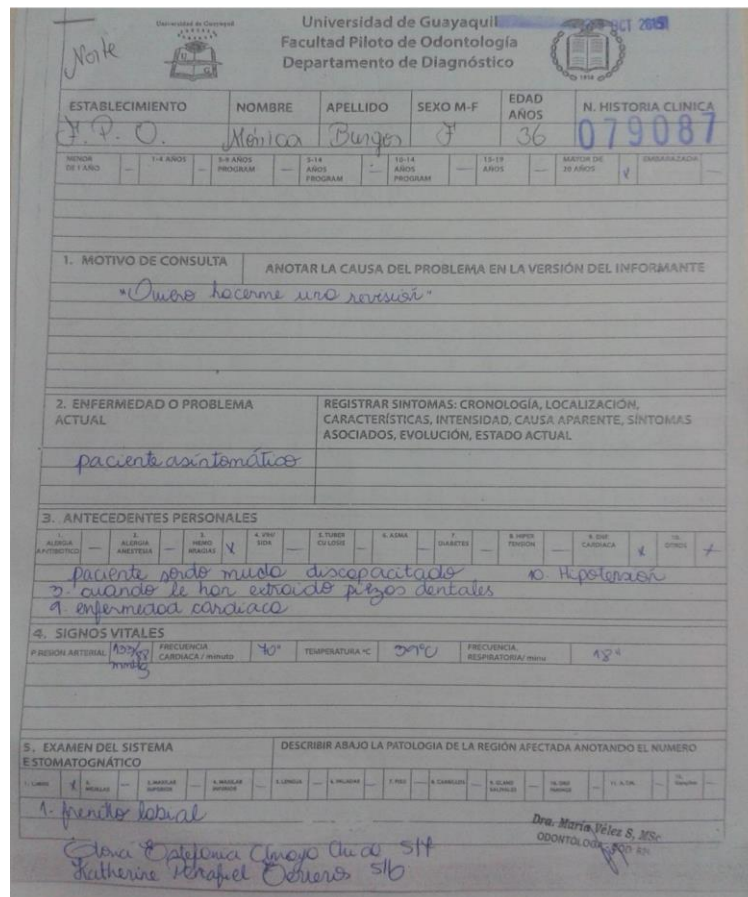 Universidad de Guayaquil
Universidad de Guayaquil
OCT 2015
Norte
Facultad Piloto de Odontología
Departamento de Diagnóstico
ESTABLECIMIENTO NOMBRE APELLIDO SEXO M-F EDAD AÑOS N. HISTORIA CLINICA
F. P. O. Mónica Burgos F 36 079087
MENOR DE 1 AÑO — 1-4 AÑOS — 5-9 AÑOS PROGRAM — 5-14 AÑOS PROGRAM — 10-14 AÑOS PROGRAM — 15-19 AÑOS — MAYOR DE 20 AÑOS x EMBARAZADA —
1. MOTIVO DE CONSULTA ANOTAR LA CAUSA DEL PROBLEMA EN LA VERSIÓN DEL INFORMANTE
"Quiero hacerme una revisión"
2. ENFERMEDAD O PROBLEMA ACTUAL
REGISTRAR SINTOMAS: CRONOLOGÍA, LOCALIZACIÓN,
CARACTERÍSTICAS, INTENSIDAD, CAUSA APARENTE, SÍNTOMAS
ASOCIADOS, EVOLUCIÓN, ESTADO ACTUAL
paciente asintomático
3. ANTECEDENTES PERSONALES
1. ALERGIA ANTIBIOTICO — 2. ALERGIA ANESTESIA — 3. HEMO RRAGIAS x 4. VIH/ SIDA — 5. TUBER CULOSIS — 6. ASMA — 7. DIABETES — 8. HIPER TENSIÓN — 9. ENF. CARDIACA x 10. OTROS x
paciente sordo mudo discapacitado 10. Hipotensión
3. cuando le han extraido piezas dentales
9. enfermedad cardiaca
4. SIGNOS VITALES
PRESIÓN ARTERIAL mmHg FRECUENCIA CARDIACA / minuto 70" TEMPERATURA °C 37°C FRECUENCIA. RESPIRATORIA/ minu 18"
5. EXAMEN DEL SISTEMA ESTOMATOGNÁTICO
DESCRIBIR ABAJO LA PATOLOGIA DE LA REGIÓN AFECTADA ANOTANDO EL NUMERO
1. LABIOS x 2. MEJILLAS — 3. MAXILAR SUPERIOR — 4. MAXILAR INFERIOR — 5. LENGUA — 6. PALADAR — 7. PISO — 8. CARRILLOS —
1- frenillo labial
Dra. María Vélez S, MSc.
Katherine